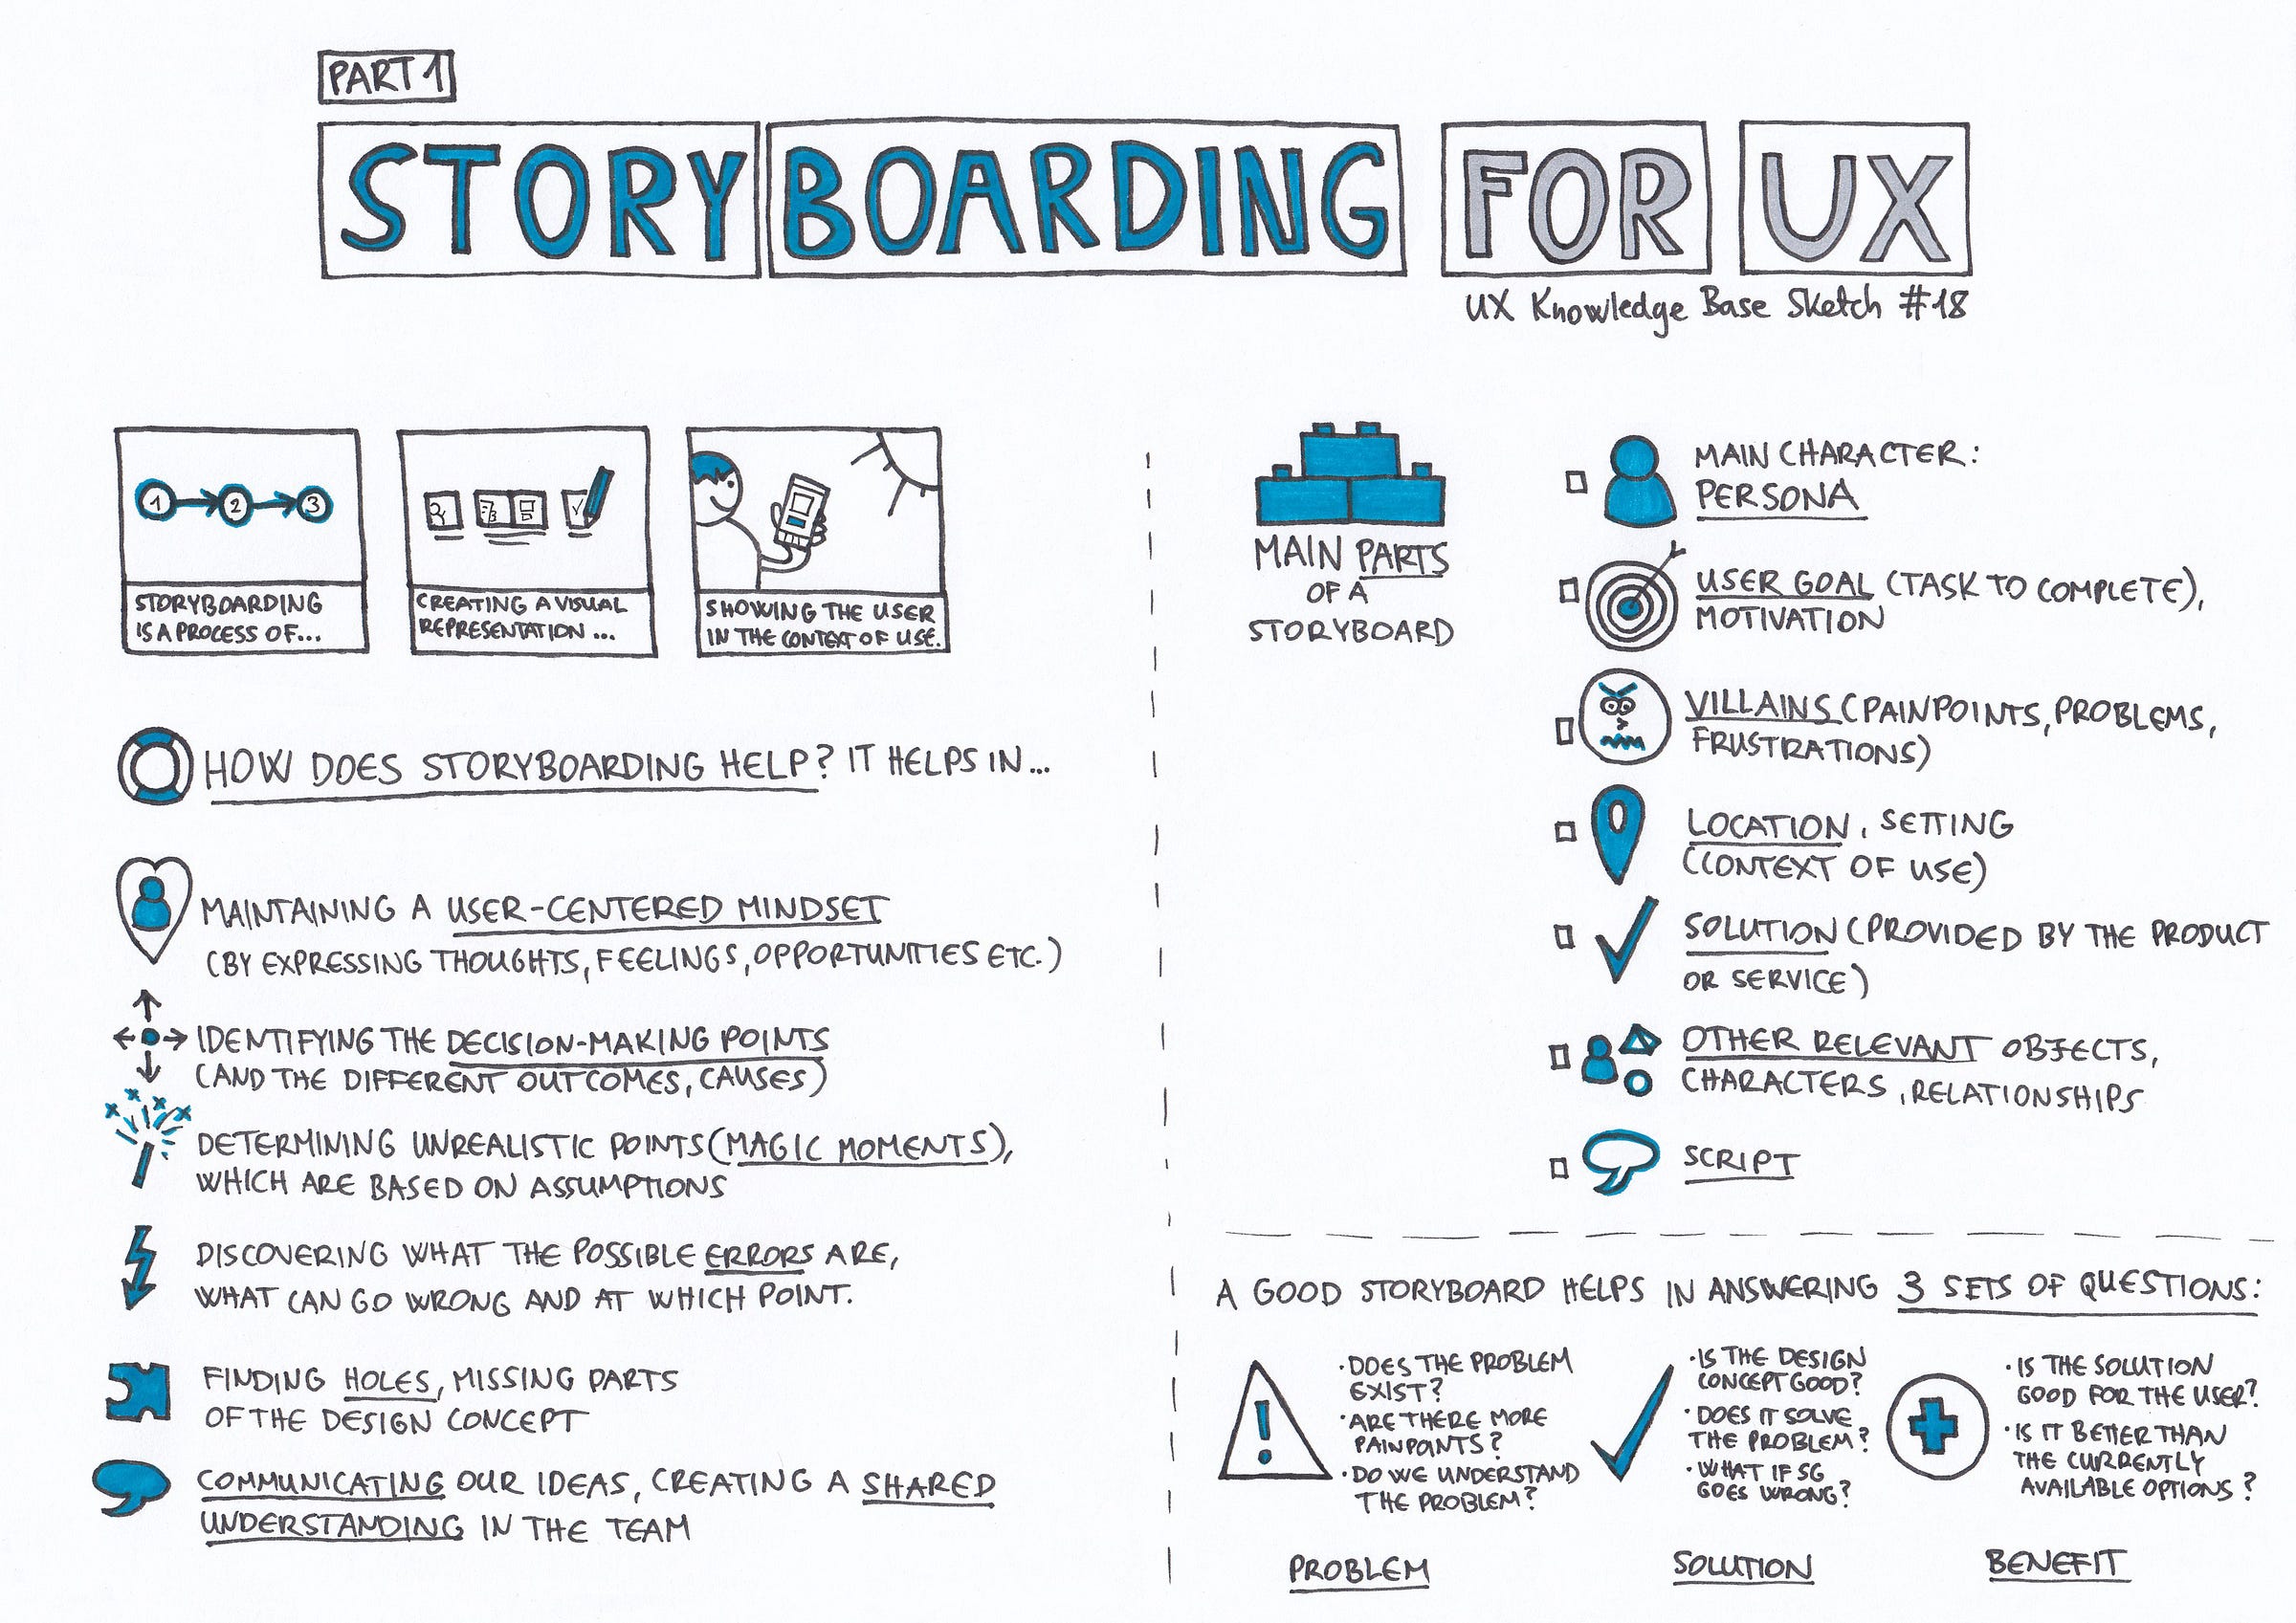 PART 1
STORYBOARDING FOR UX
UX Knowledge Base Sketch #18
1 2 3
STORYBOARDING
IS A PROCESS OF...
CREATING A VISUAL
REPRESENTATION ...
SHOWING THE USER
IN THE CONTEXT OF USE.
HOW DOES STORYBOARDING HELP? IT HELPS IN...
MAINTAINING A USER-CENTERED MINDSET
(BY EXPRESSING THOUGHTS, FEELINGS, OPPORTUNITIES ETC.)
IDENTIFYING THE DECISION-MAKING POINTS
(AND THE DIFFERENT OUTCOMES, CAUSES)
DETERMINING UNREALISTIC POINTS (MAGIC MOMENTS),
WHICH ARE BASED ON ASSUMPTIONS
DISCOVERING WHAT THE POSSIBLE ERRORS ARE,
WHAT CAN GO WRONG AND AT WHICH POINT.
FINDING HOLES, MISSING PARTS
OF THE DESIGN CONCEPT
COMMUNICATING OUR IDEAS, CREATING A SHARED
UNDERSTANDING IN THE TEAM
MAIN PARTS
OF A
STORYBOARD
MAIN CHARACTER:
PERSONA
USER GOAL (TASK TO COMPLETE),
MOTIVATION
VILLAINS (PAINPOINTS, PROBLEMS,
FRUSTRATIONS)
LOCATION, SETTING
(CONTEXT OF USE)
SOLUTION (PROVIDED BY THE PRODUCT
OR SERVICE)
OTHER RELEVANT OBJECTS,
CHARACTERS, RELATIONSHIPS
SCRIPT
A GOOD STORYBOARD HELPS IN ANSWERING 3 SETS OF QUESTIONS:
!
• DOES THE PROBLEM
EXIST?
• ARE THERE MORE
PAINPOINTS?
• DO WE UNDERSTAND
THE PROBLEM?
PROBLEM
• IS THE DESIGN
CONCEPT GOOD?
• DOES IT SOLVE
THE PROBLEM?
• WHAT IF SG
GOES WRONG?
SOLUTION
• IS THE SOLUTION
GOOD FOR THE USER?
• IS IT BETTER THAN
THE CURRENTLY
AVAILABLE OPTIONS?
BENEFIT